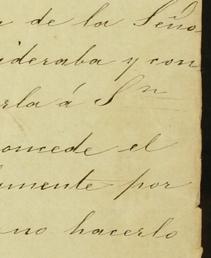 a de la Seño
ideraba y con
erla á Sn
oncede el
amente por
no hacerlo